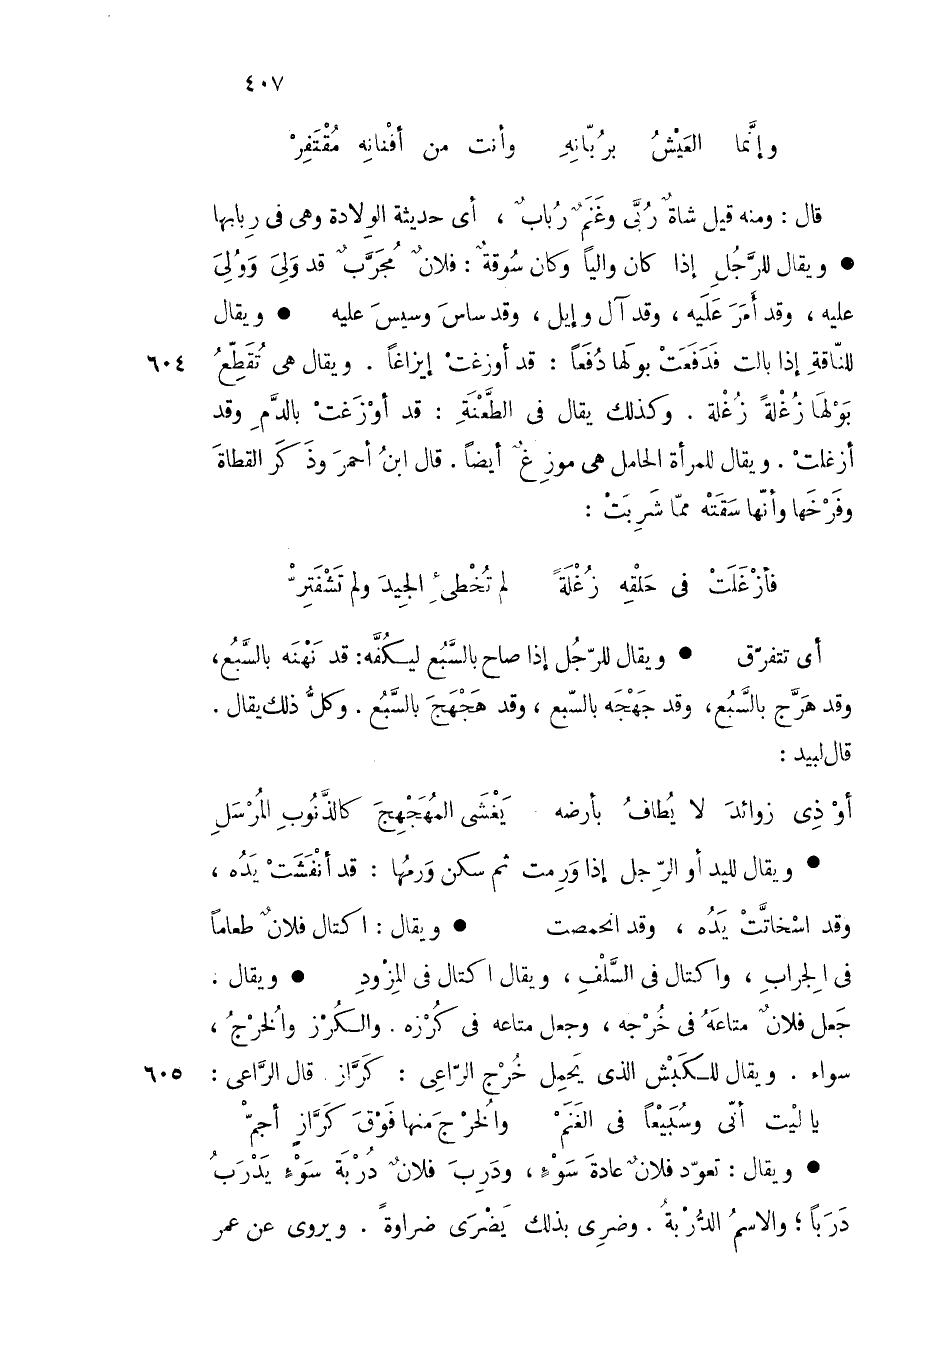 ٤٠٧
وإنَّما العَيْشُ برُبّانِهِ وأنت من أفْنانِه مُقْتَفِرْ
قال : ومنه قيل شاةٌ رُبَّى وغَنَمٌ رُبابٌ ، أى حديثة الولادة وهى فى رِبابها
● ويقال للرَّجُلِ إذا كان والياً وكان سُوقةً : فلانٌ مُجَرَّبٌ قد وَلِىَ وَوُلِىَ
عليه ، وقد أَمَرَ عَلَيه ، وقد آل وإيل ، وقد ساسَ وسيسَ عليه ● ويقال
للنّاقةِ إذا بالت فَدَفَعَتْ بولها دُفَعاً : قد أوزغتْ إيزاغاً . ويقال هى تُقَطِّعُ ٦٠٤
بَوْلهَا زُغْلةً زُغْلة . وكذلك يقال فى الطَّعْنَةِ : قد أوْزَغتْ بالدَّمِ وقد
أزغلتْ . ويقال للمرأة الحامل هى موزِغٌ أيضاً . قال ابنُ أحمرَ وذَكَرَ القطاةَ
وفَرْخَها وأنّها سَقَتْه ممّا شَرِبَتْ :
فأزْغَلَتْ فى حَلْقِه زُغْلَةً لم تُخْطىءِ الجِيدَ ولم تَشْفَتِرّْ
أى تتفرّق ● ويقال للرّجُل إذا صاح بالسَّبُع ليكُفَّه: قد نَهْنَه بالسَّبُع،
وقد هَرَّج بالسَّبُع، وقد جَهْجَه بالسّبع ، وقد هَجْهَجَ بالسَّبُع . وكلُّ ذلك يقال .
قال لبيد :
أوْ ذِى زوائدَ لا يُطافُ بأرضه يَغْشَى المُهَجْهِجَ كالذَّنُوبِ المُرْسَلِ
● ويقال لليد أو الرّجل إذا وَرِمت ثم سكن وَرمُها : قد أنْفَشَتْ يَدُه ،
وقد اسْخاتَّتْ يَدُه ، وقد انحمصت ● ويقال : اكتال فلانٌ طعاماً
فى الجِرابِ ، واكتال فى السَّلْفِ ، ويقال اكتال فى المِزْودِ ● ويقال .
جَعل فلانٌ متاعَهُ فى خُرْجه ، وجعل متاعه فى كُرْزه . والكُرْز والخرْجُ ،
سواء . ويقال للكَبْش الذى يَحمِل خُرْج الرّاعِى : كَرَّاز . قال الرَّاعى : ٦٠٥
يا ليْت أنّى وسُبَيْعاً فى الغَنَمْ والخرْجَ منها فَوْقَ كَرَّازٍ أجمّْ
● ويقال : تعوّد فلانٌ عادةَ سَوْءٍ ، ودَرِبَ فلانٌ دُرْبَة سَوْءٍ يَدْرَبُ
دَرَباً ؛ والاسمُ الدُّرْبةُ . وضرِى بذلك يَضْرَى ضراوةً . ويروى عن عمر